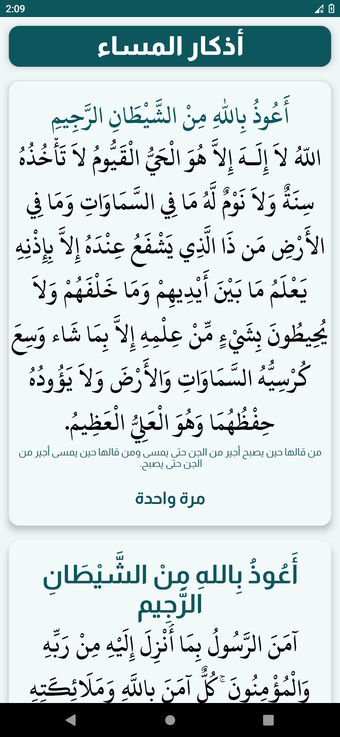 2:09
أذكار المساء
أَعُوذُ بِاللهِ مِنْ الشَّيْطَانِ الرَّجِيمِ
اللّهُ لاَ إِلَـهَ إِلاَّ هُوَ الْحَيُّ الْقَيُّومُ لاَ تَأْخُذُهُ
سِنَةٌ وَلاَ نَوْمٌ لَّهُ مَا فِي السَّمَاوَاتِ وَمَا فِي
الأَرْضِ مَن ذَا الَّذِي يَشْفَعُ عِنْدَهُ إِلاَّ بِإِذْنِهِ
يَعْلَمُ مَا بَيْنَ أَيْدِيهِمْ وَمَا خَلْفَهُمْ وَلاَ
يُحِيطُونَ بِشَيْءٍ مِّنْ عِلْمِهِ إِلاَّ بِمَا شَاء وَسِعَ
كُرْسِيُّهُ السَّمَاوَاتِ وَالأَرْضَ وَلاَ يَؤُودُهُ
حِفْظُهُمَا وَهُوَ الْعَلِيُّ الْعَظِيمُ.
من قالها حين يصبح أجير من الجن حتى يمسى ومن قالها حين يمسى أجير من
الجن حتى يصبح.
مرة واحدة
أَعُوذُ بِاللهِ مِنْ الشَّيْطَانِ
الرَّجِيم
آمَنَ الرَّسُولُ بِمَا أُنْزِلَ إِلَيْهِ مِنْ رَبِّهِ
وَالْمُؤْمِنُونَ ۚ كُلٌّ آمَنَ بِاللَّهِ وَمَلَائِكَتِهِ